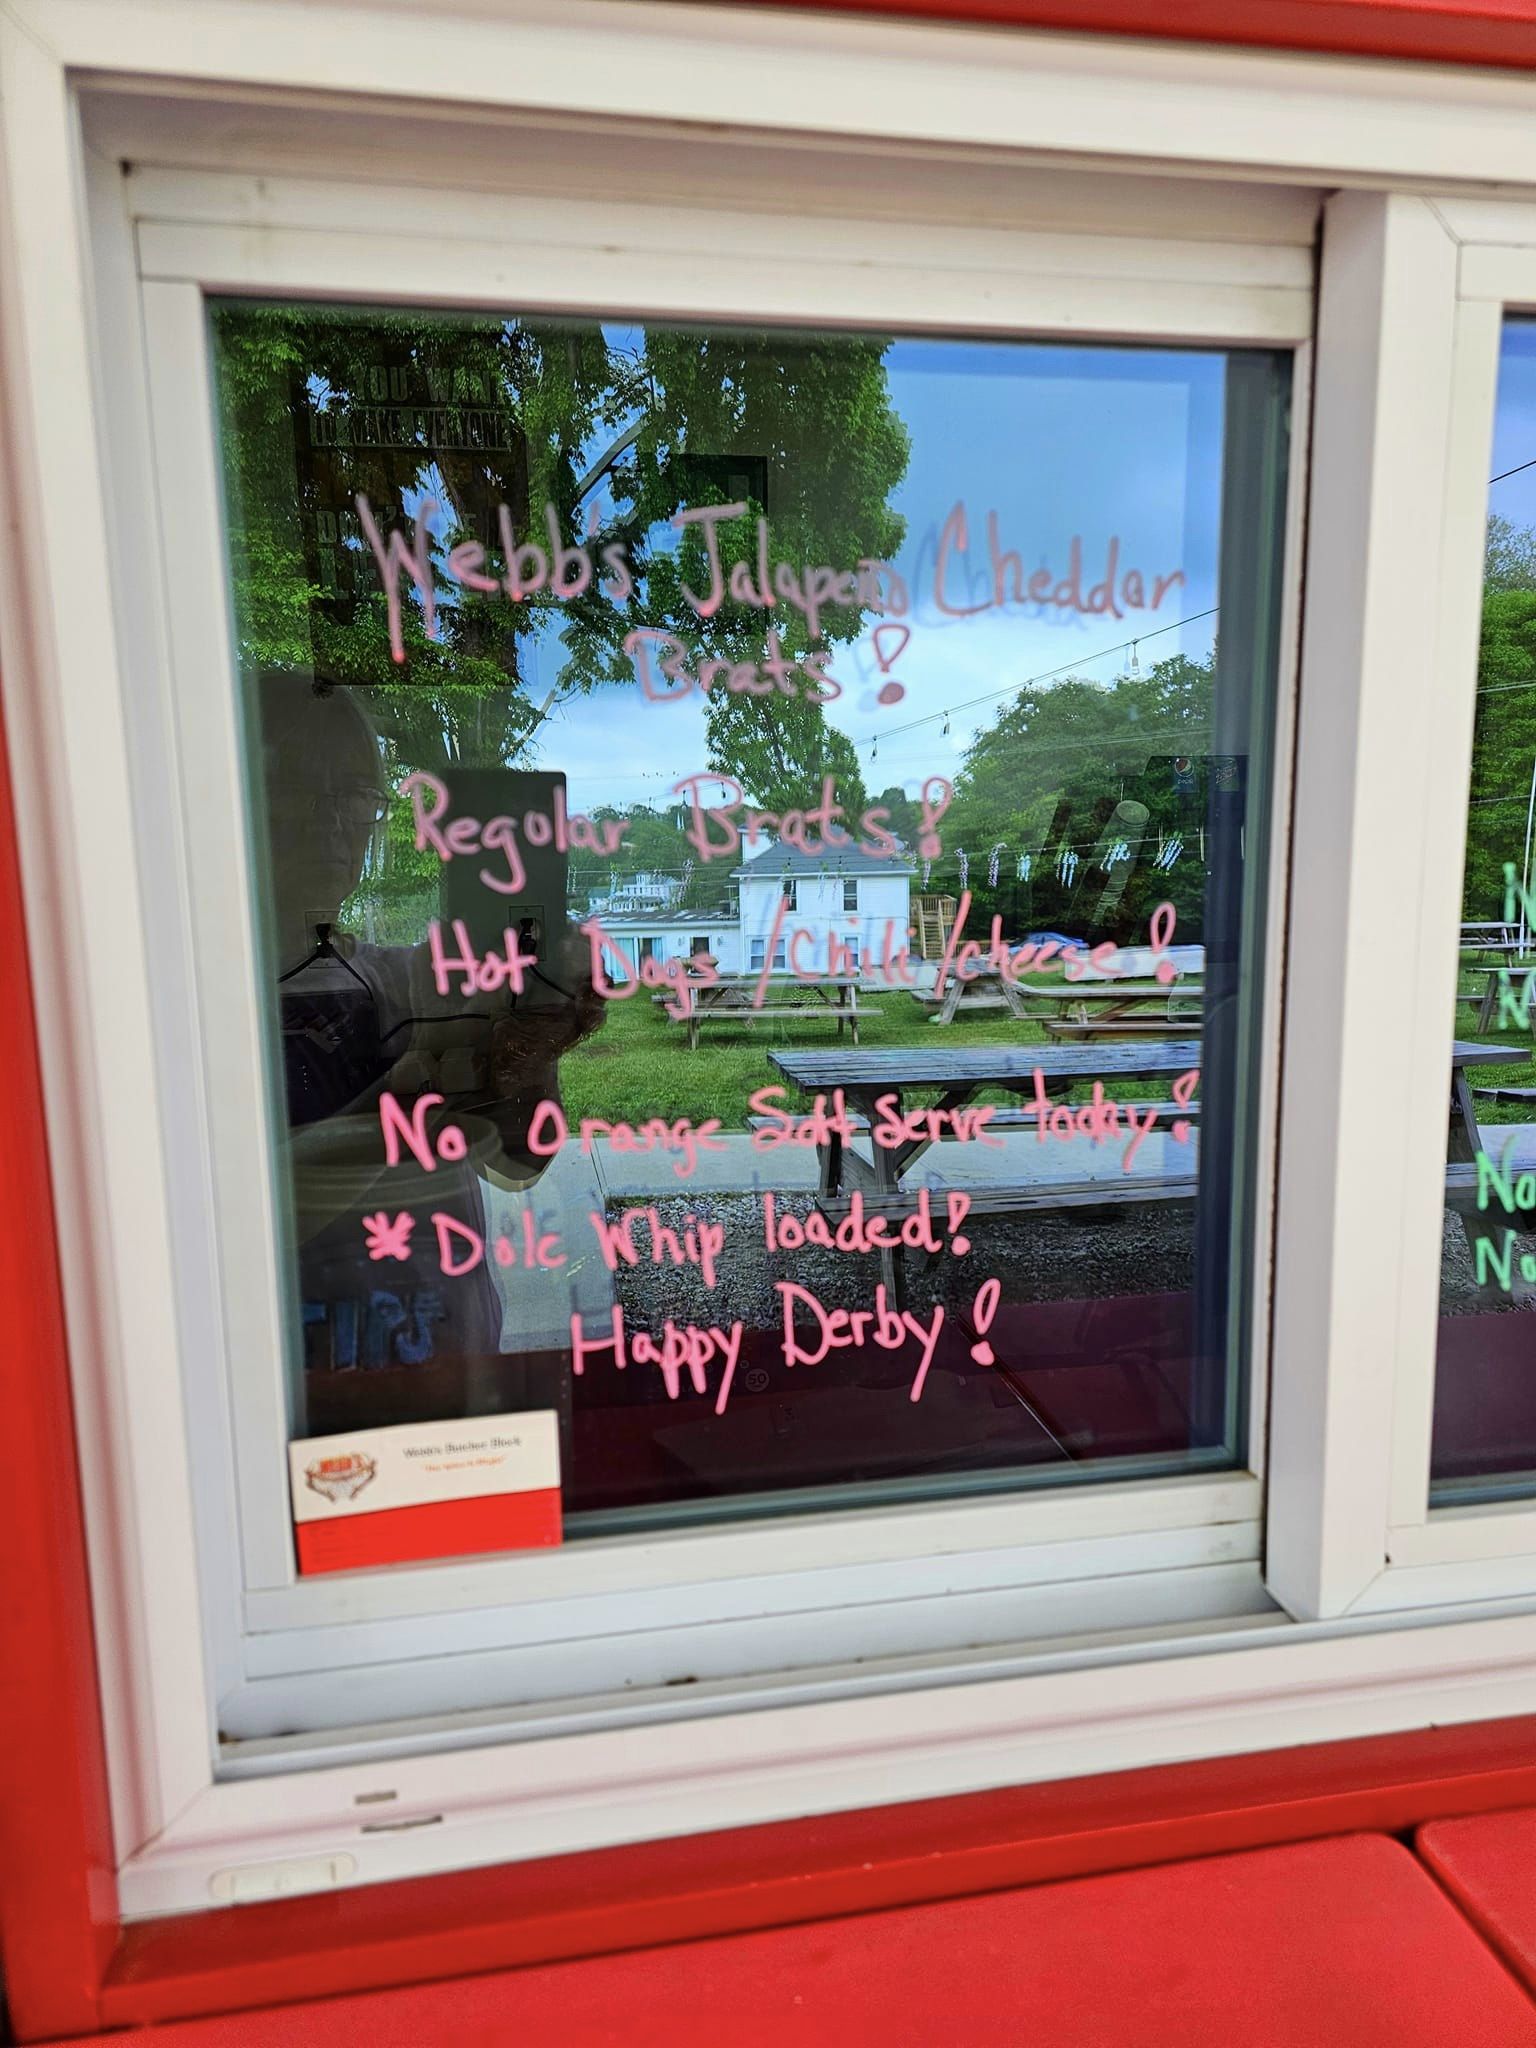 YOU WANT
TO MAKE EVERYONE
Webb's Jalapeño Cheddar
Brats!
Regular Brats!
Hot Dogs/Chili/cheese!
No Orange Soft Serve today!
*Dole Whip loaded!
Happy Derby!
TIPS
50
WEBB'S
Webb's Butcher Block
pepsi
No
No